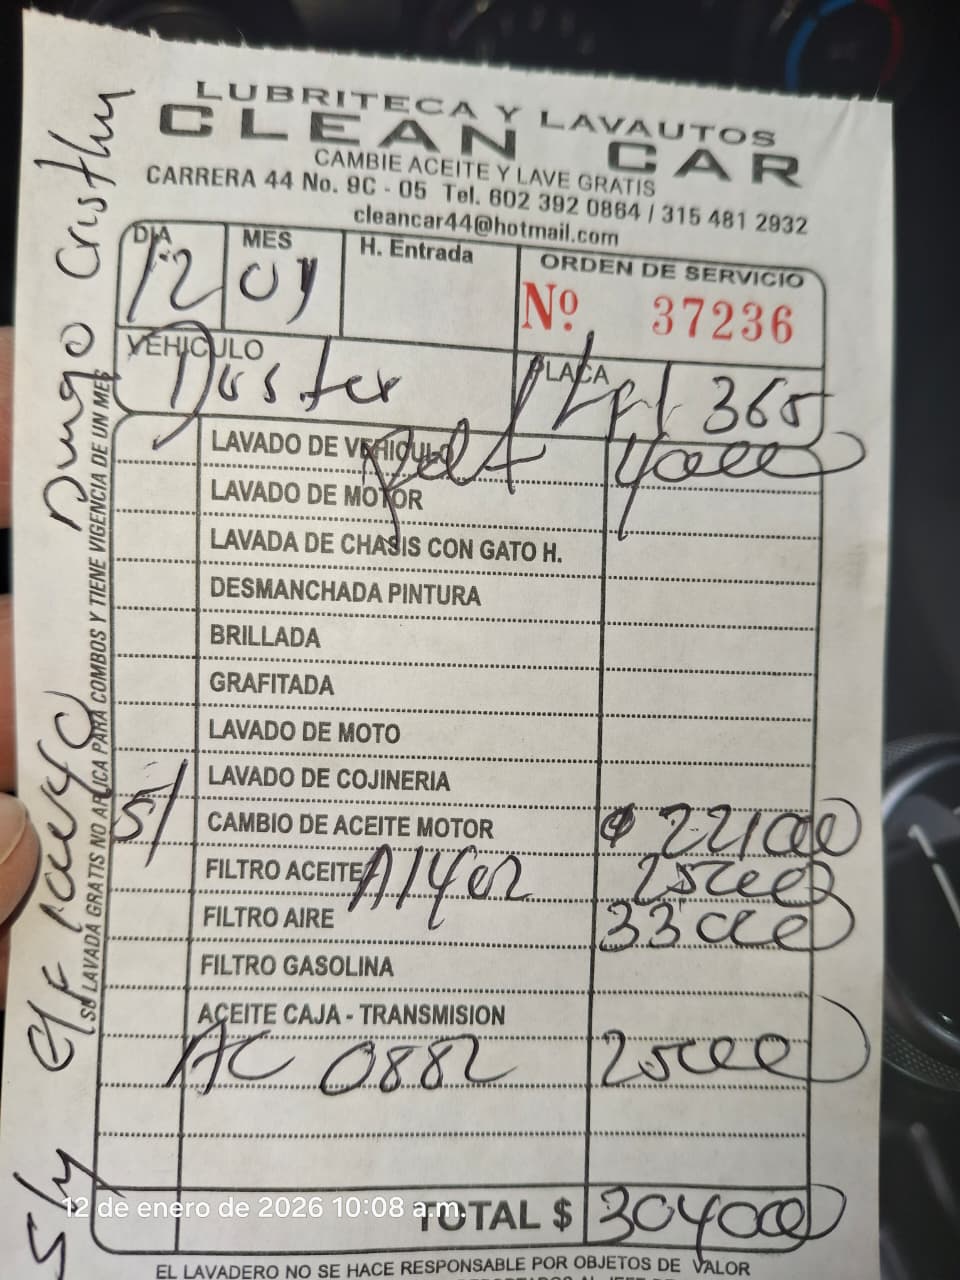 LUBRITECA Y LAVAUTOS
CLEAN CAR
CAMBIE ACEITE Y LAVE GRATIS
CARRERA 44 No. 9C - 05 Tel. 602 392 0864 / 315 481 2932
cleancar44@hotmail.com
DIA 12 MES 01 H. Entrada ORDEN DE SERVICIO
Nº. 37236
VEHICULO Duster PLACA 365
LAVADO DE VEHICULO
LAVADO DE MOTOR
LAVADA DE CHASIS CON GATO H.
DESMANCHADA PINTURA
BRILLADA
GRAFITADA
LAVADO DE MOTO
LAVADO DE COJINERIA
5/ CAMBIO DE ACEITE MOTOR 221000
FILTRO ACEITE A1402 25000
FILTRO AIRE 33000
FILTRO GASOLINA
ACEITE CAJA - TRANSMISION
AC 0882 25000
TOTAL $ 304000
EL LAVADERO NO SE HACE RESPONSABLE POR OBJETOS DE VALOR
SU LAVADA GRATIS NO APLICA PARA COMBOS Y TIENE VIGENCIA DE UN MES
12 de enero de 2026 10:08 a.m.